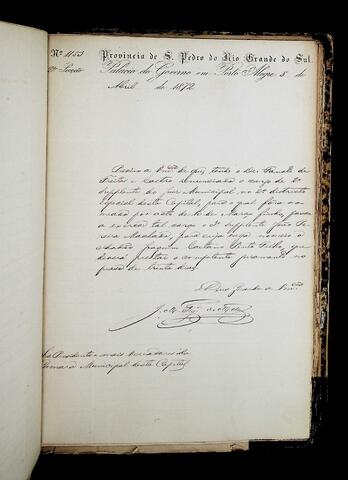 Nº 1153 Provincia de S. Pedro do Rio Grande do Sul.
2ª Secção Palacio do Governo em Porto Alegre 8 de
Abril de 1872
Previno a Vmcês de que, tendo o Dr. Fausto de
Freitas e Castro renunciado o cargo de 2º
supplente do Juiz Municipal no 2º districto
especial desta Capital, para o qual fôra no-
meado por acto de 10 de Março findo, passa
a exercer tal cargo o 3º supplente João Pe-
reira Machado, para cuja vaga nomeio o
cidadão Joaquim Caetano Pinto Filho, que
deverá prestar o competente juramento no
praso de trinta dias.
Deus Guarde a Vmcês
Srs Presidente e mais Vereadores da
Camara Municipal desta Capital